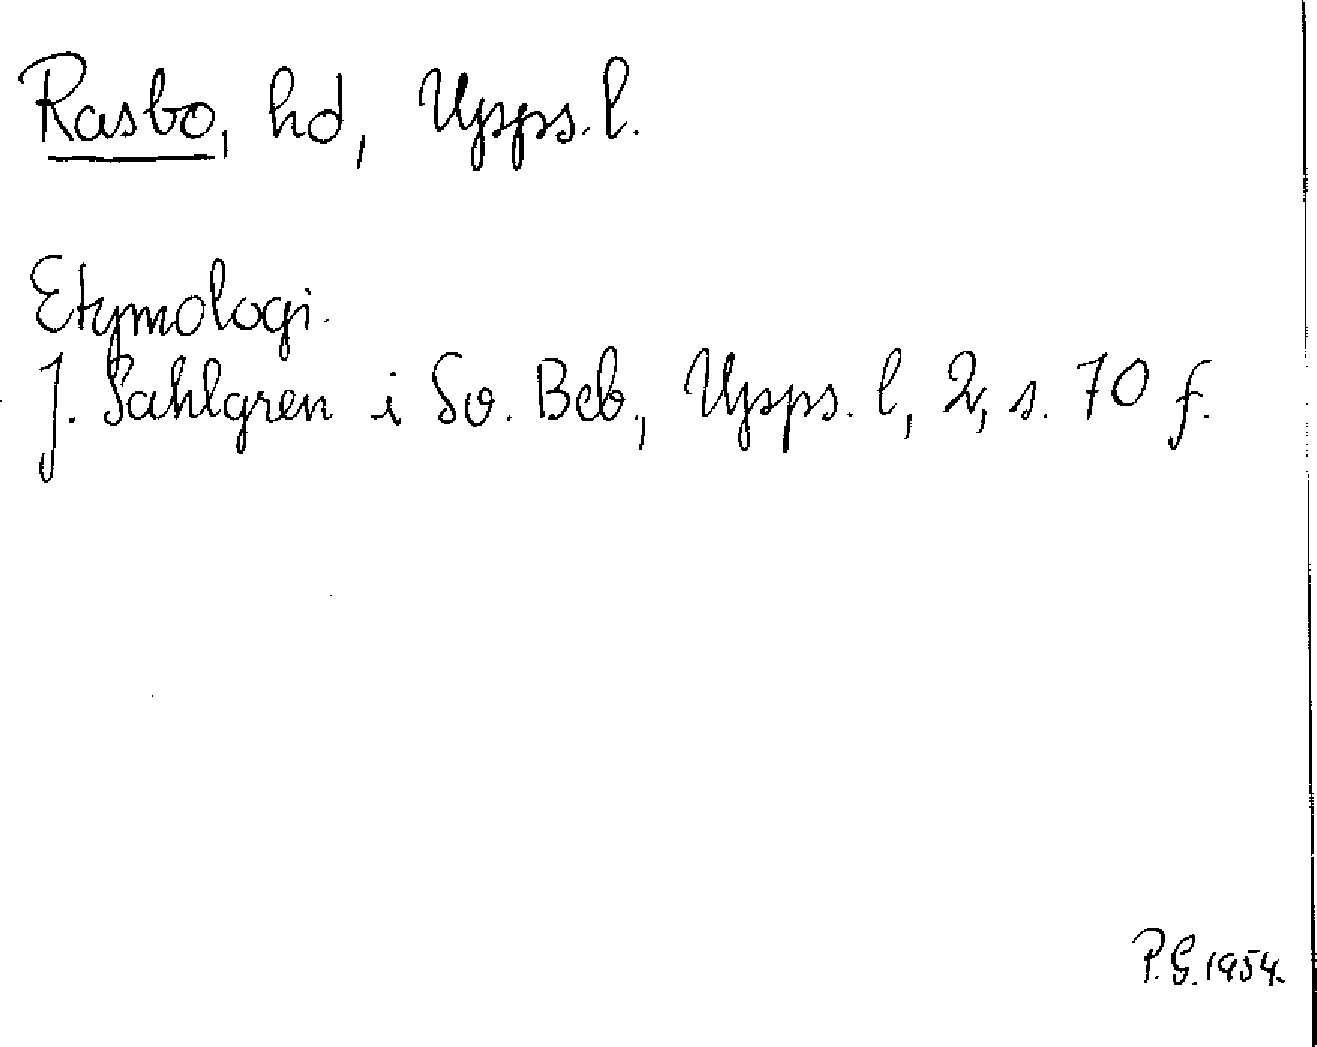 Rasbo, hd, Upps. l.
Etymologi.
J. Sahlgren i Sv. Beb., Upps. l, 2, s. 70 f.
P.G. 1954.